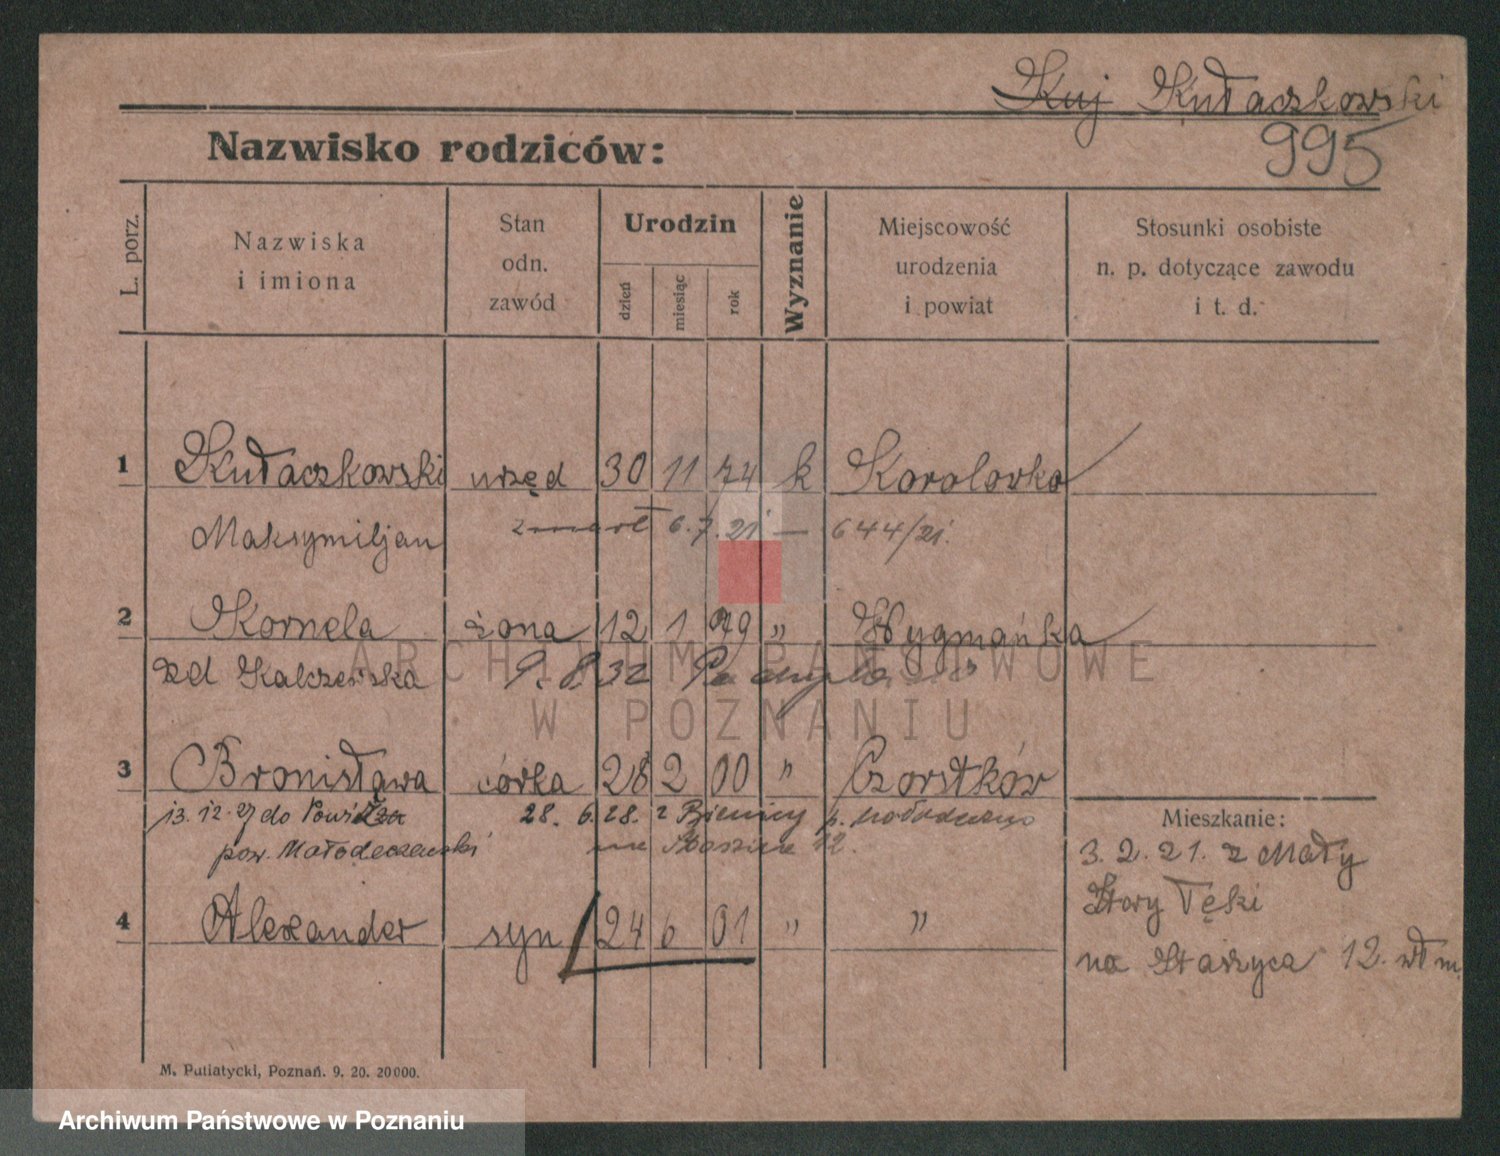 Kuj Kułaczkowski
995
Nazwisko rodziców:
L. porz.
Nazwiska
i imiona
Stan
odn.
zawód
Urodzin
dzień
miesiąc
rok
Wyznanie
Miejscowość
urodzenia
i powiat
Stosunki osobiste
n. p. dotyczące zawodu
i t. d.
1 Kułaczkowski urzęd 30 11 74 k Korolovka
Maksymiljan zmarł 6.7.21 — 644/21.
2 Kornela żona 12 1 79 „ Hygmańka
zd 9.8.32
3 Bronisława córka 28 2 00 „ Czortków
13.12.27 do 28.6.28. z Bienicy p.
pow. Mołodeczański na Staszica 12.
4 Alexander syn 24 6 01 „ „
Mieszkanie:
3.2.21. z Mały
Story Tęki
na Staszyca 12. wł m.
M. Putiatycki, Poznań. 9. 20. 20000.
ARCHIWUM PAŃSTWOWE
W POZNANIU
Archiwum Państwowe w Poznaniu